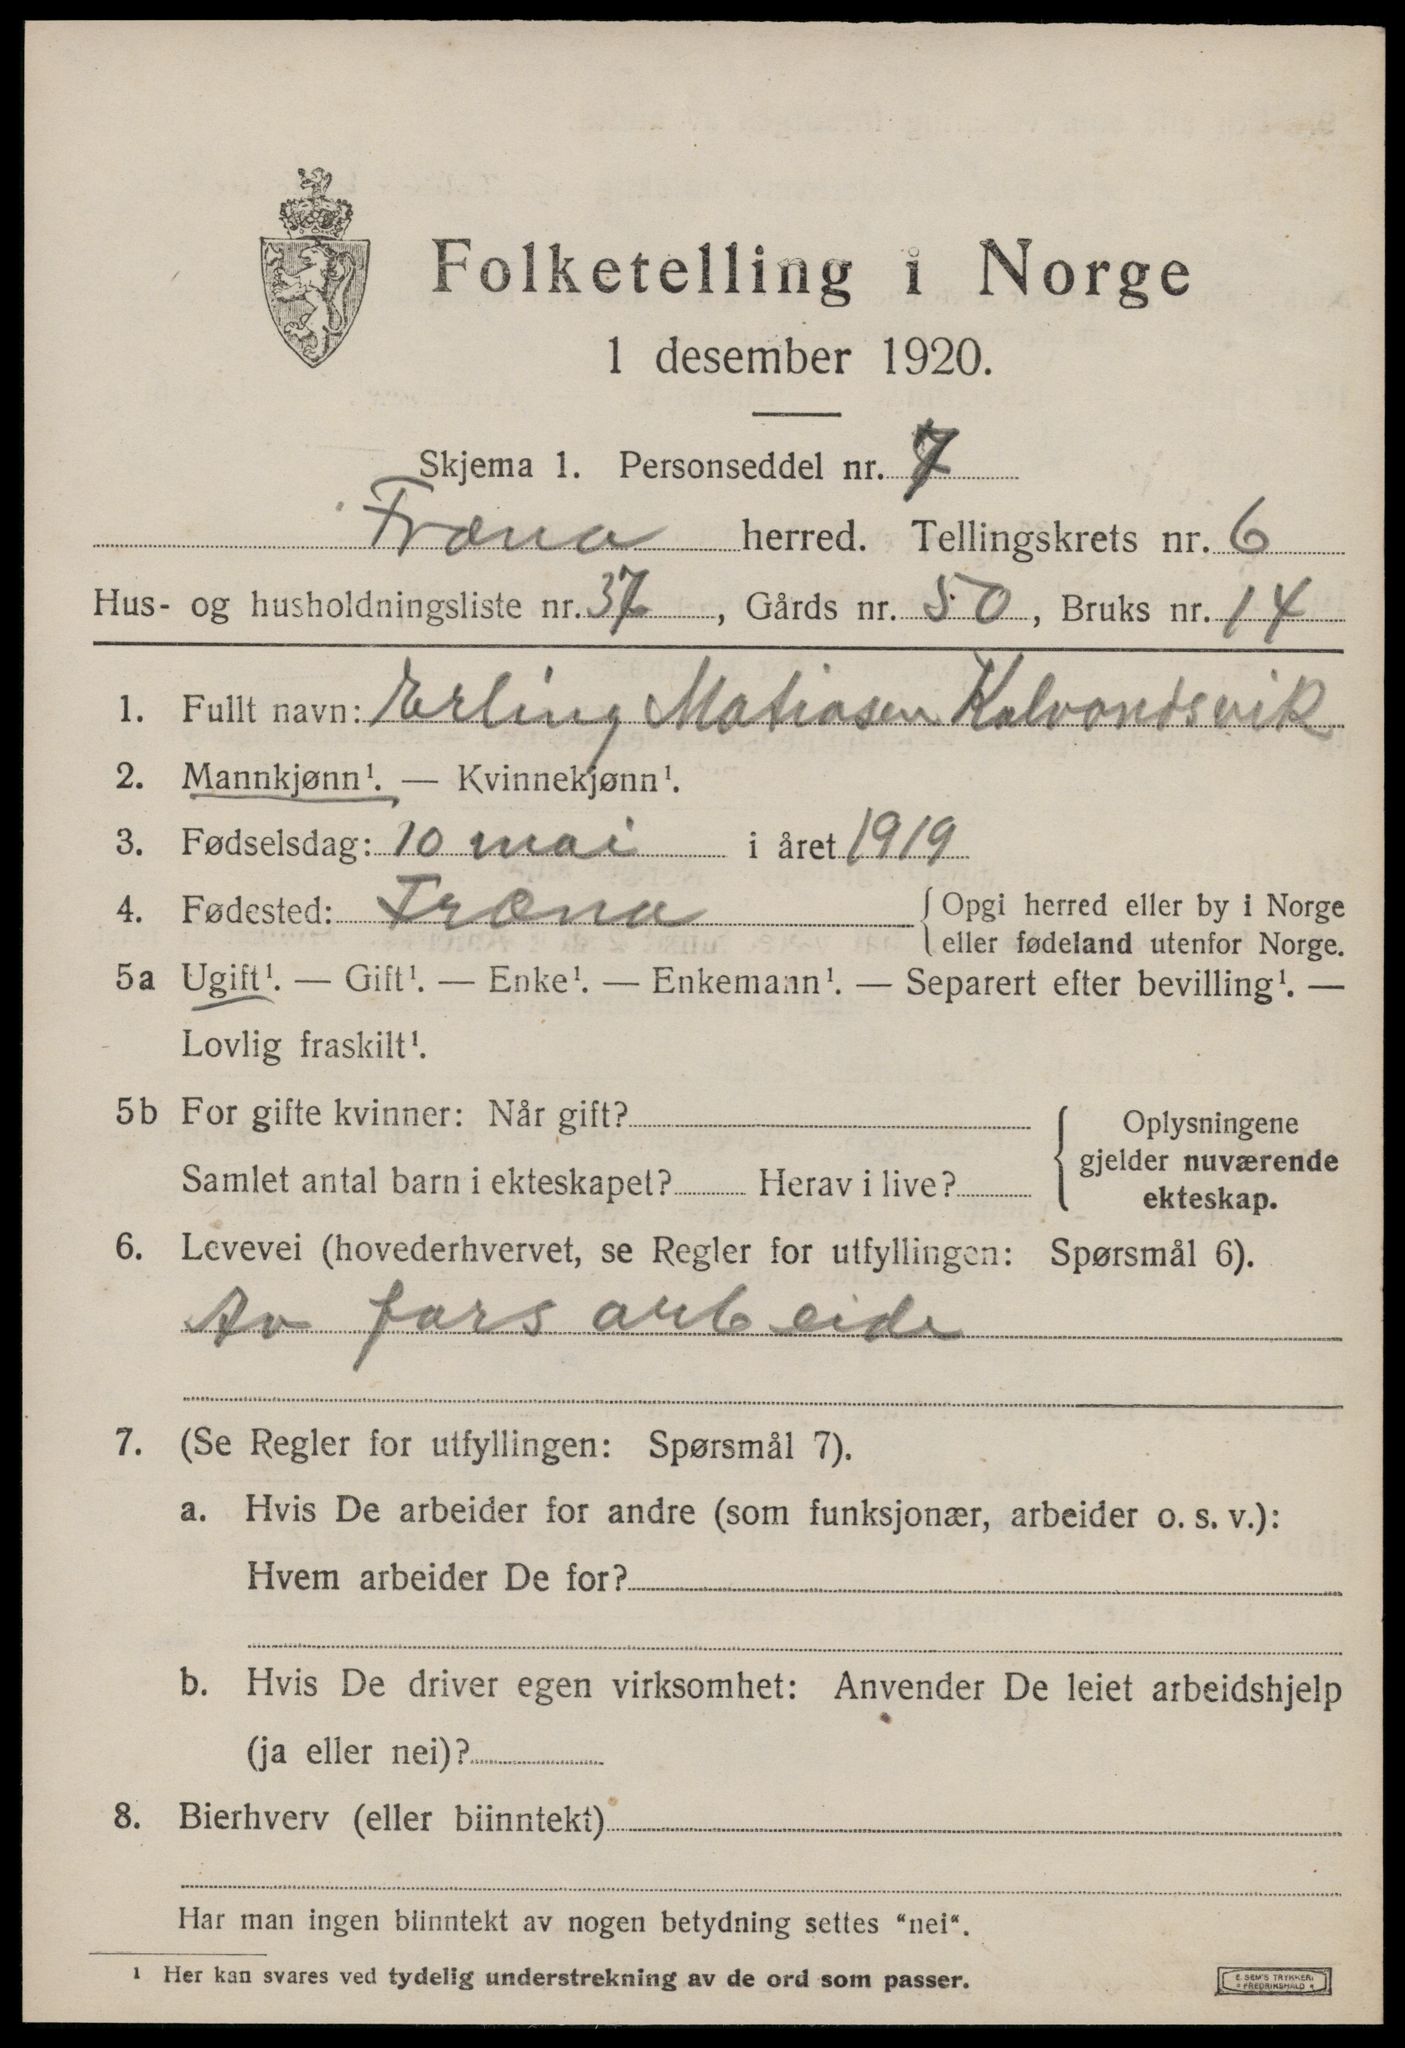 Folketelling i Norge
1 desember 1920.
Skjema 1. Personseddel nr. 7
Fræna herred. Tellingskrets nr. 6
Hus- og husholdningsliste nr. 37, Gårds nr. 50, Bruks nr. 14
1. Fullt navn: Erling Matiasen Kalvandsvik
2. Mannkjønn¹. — Kvinnekjønn¹.
3. Fødselsdag: 10 mai i året 1919
4. Fødested: Fræna { Opgi herred eller by i Norge
eller fødeland utenfor Norge.
5a Ugift¹. — Gift¹. — Enke¹. — Enkemann¹. — Separert efter bevilling¹. —
Lovlig fraskilt¹.
5b For gifte kvinner: Når gift? { Oplysningene
gjelder nuværende
Samlet antal barn i ekteskapet? Herav i live?
ekteskap.
6. Levevei (hovederhvervet, se Regler for utfyllingen: Spørsmål 6).
Av fars arbeide
7. (Se Regler for utfyllingen: Spørsmål 7).
a. Hvis De arbeider for andre (som funksjonær, arbeider o. s. v.):
Hvem arbeider De for?
b. Hvis De driver egen virksomhet: Anvender De leiet arbeidshjelp
(ja eller nei)?
8. Bierhverv (eller biinntekt)
Har man ingen biinntekt av nogen betydning settes "nei".
¹ Her kan svares ved tydelig understrekning av de ord som passer.
E. SEM'S TRYKKERI
FREDRIKSHALD